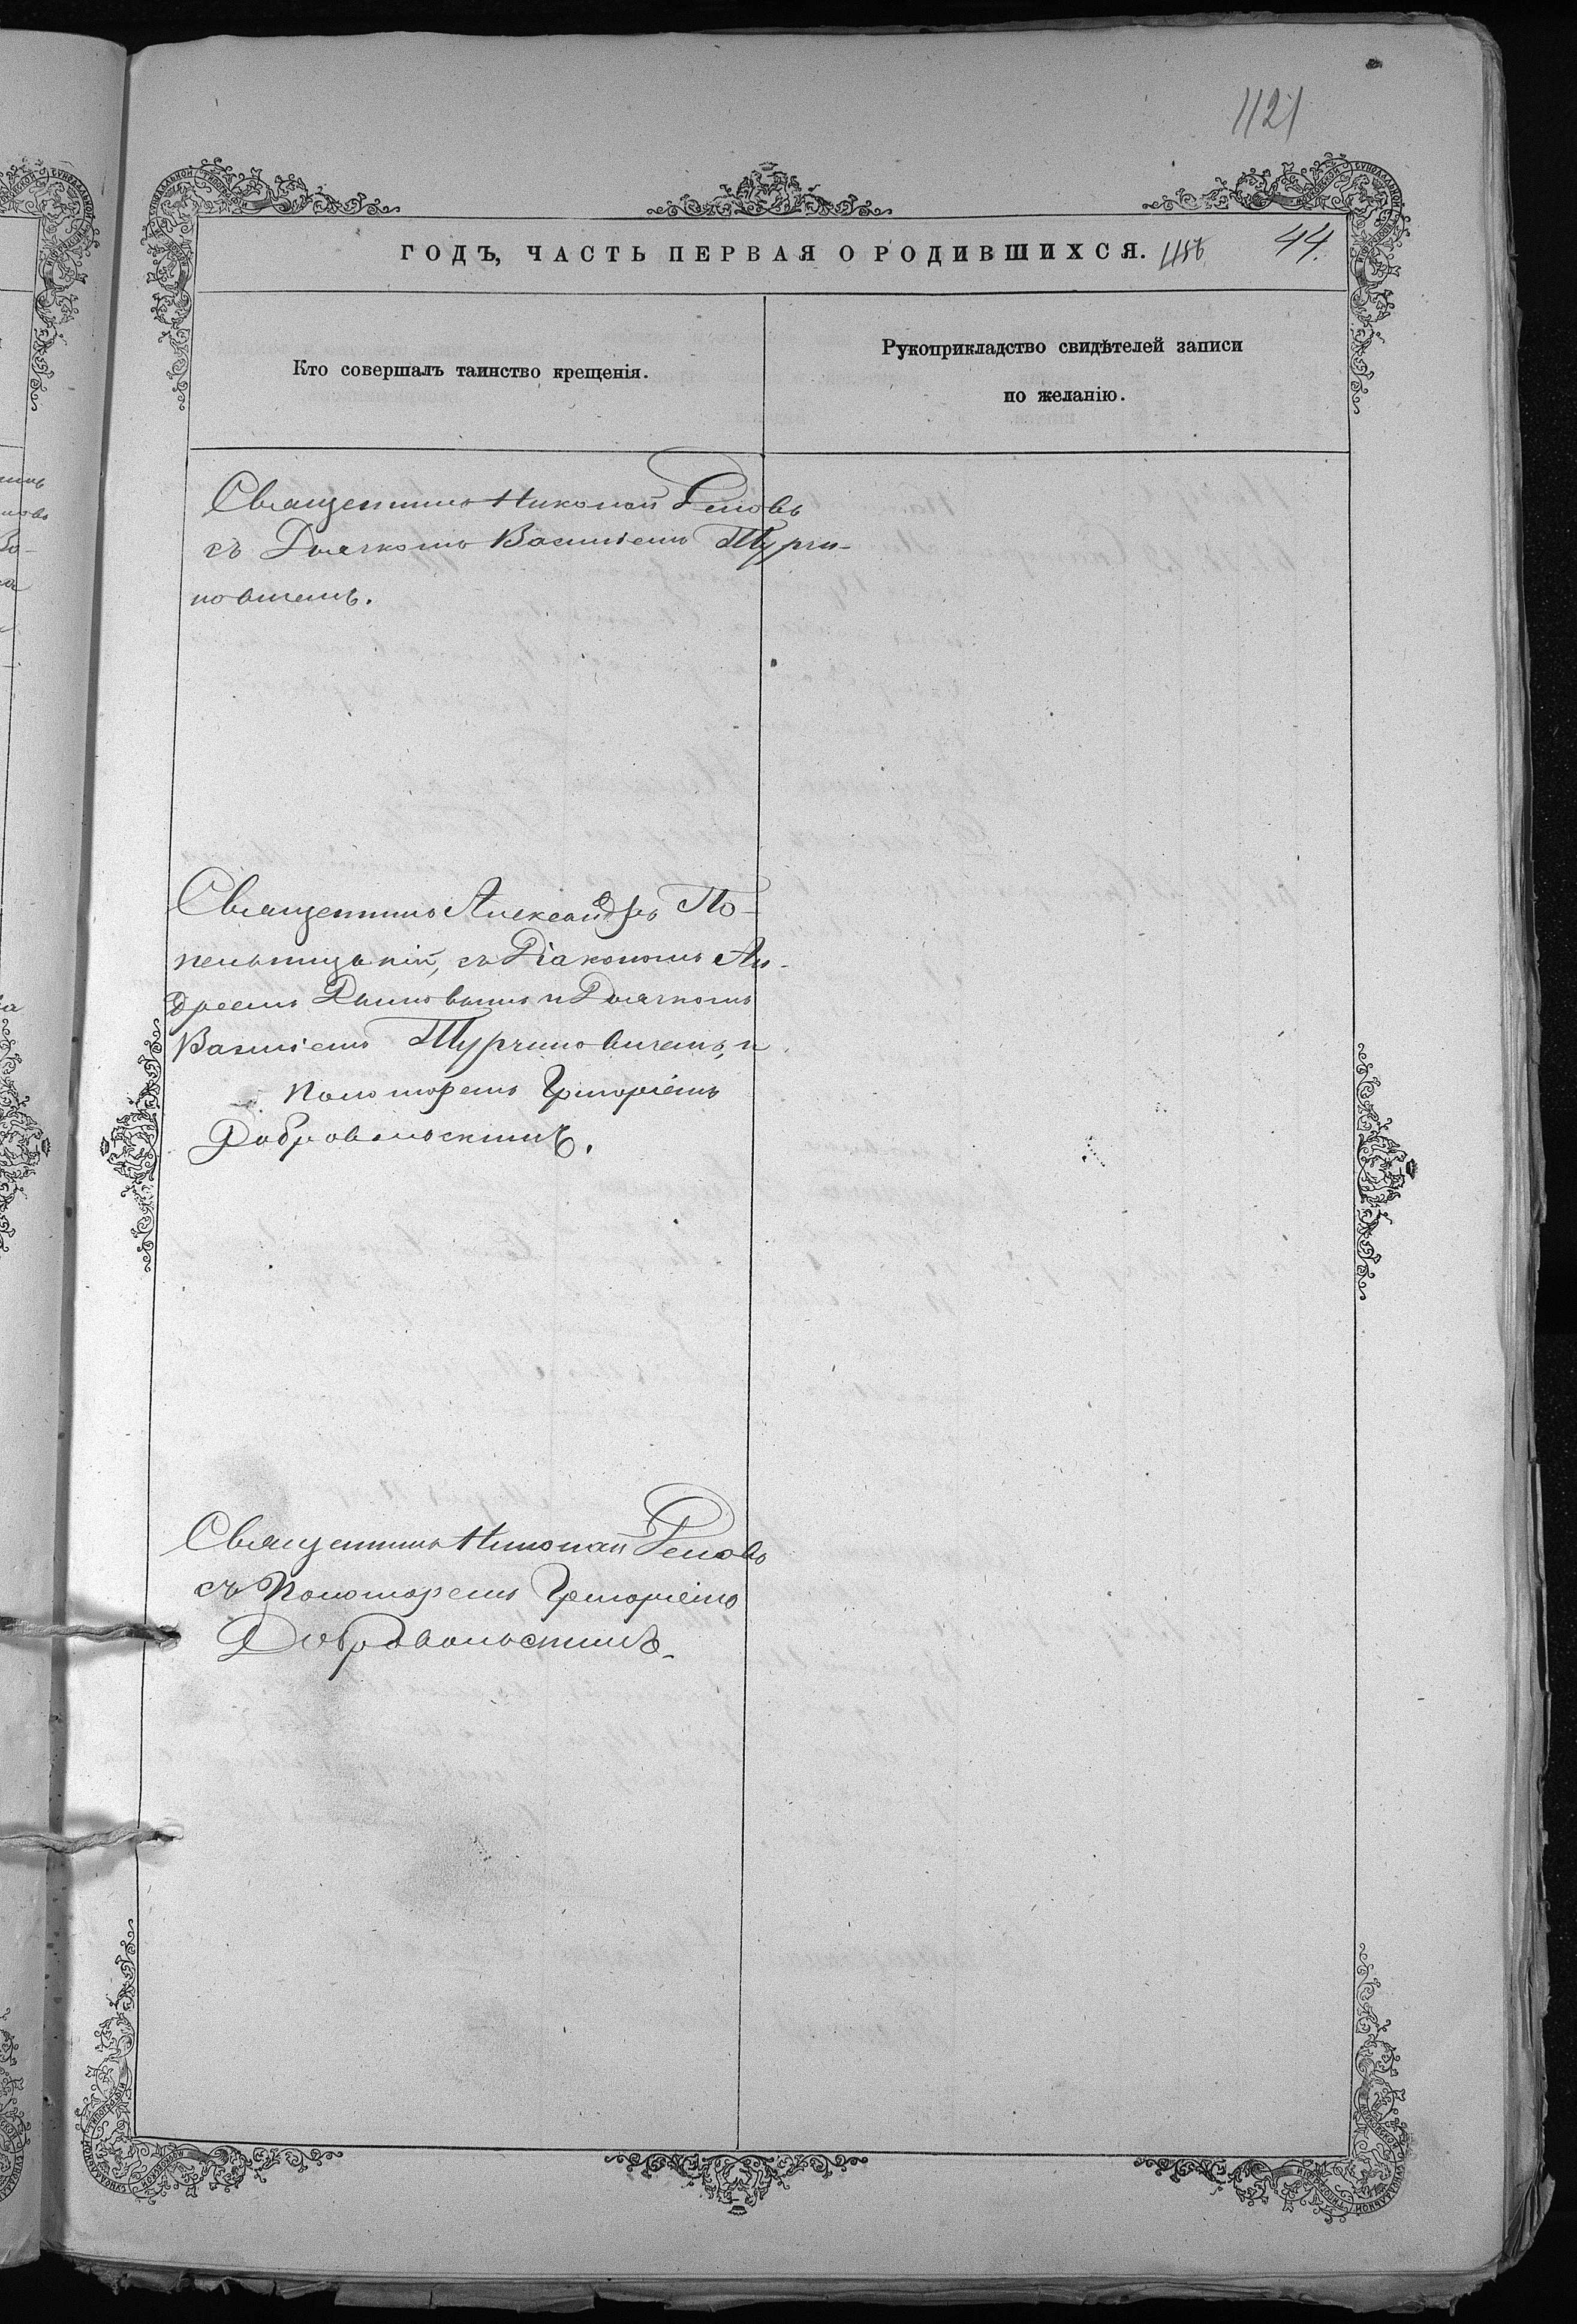 1121
ГОДЪ, ЧАСТЬ ПЕРВАЯ О РОДИВШИХСЯ. 1156 44.
Кто совершалъ таинство крещенія.
Рукоприкладство свидѣтелей записи
по желанію.
Священникъ Николай Реповъ
съ Дьячкомъ Василіемъ Турчи-
новичемъ.
Священникъ Александръ По-
съ Діакономъ Ан-
дреемъ и Дьячкомъ
Василіемъ Турчиновичемъ, и
Пономаремъ Григоріемъ
Добровольскимъ.
Священникъ Николай Реповъ
съ Пономаремъ Григоріемъ
Добровольскимъ.